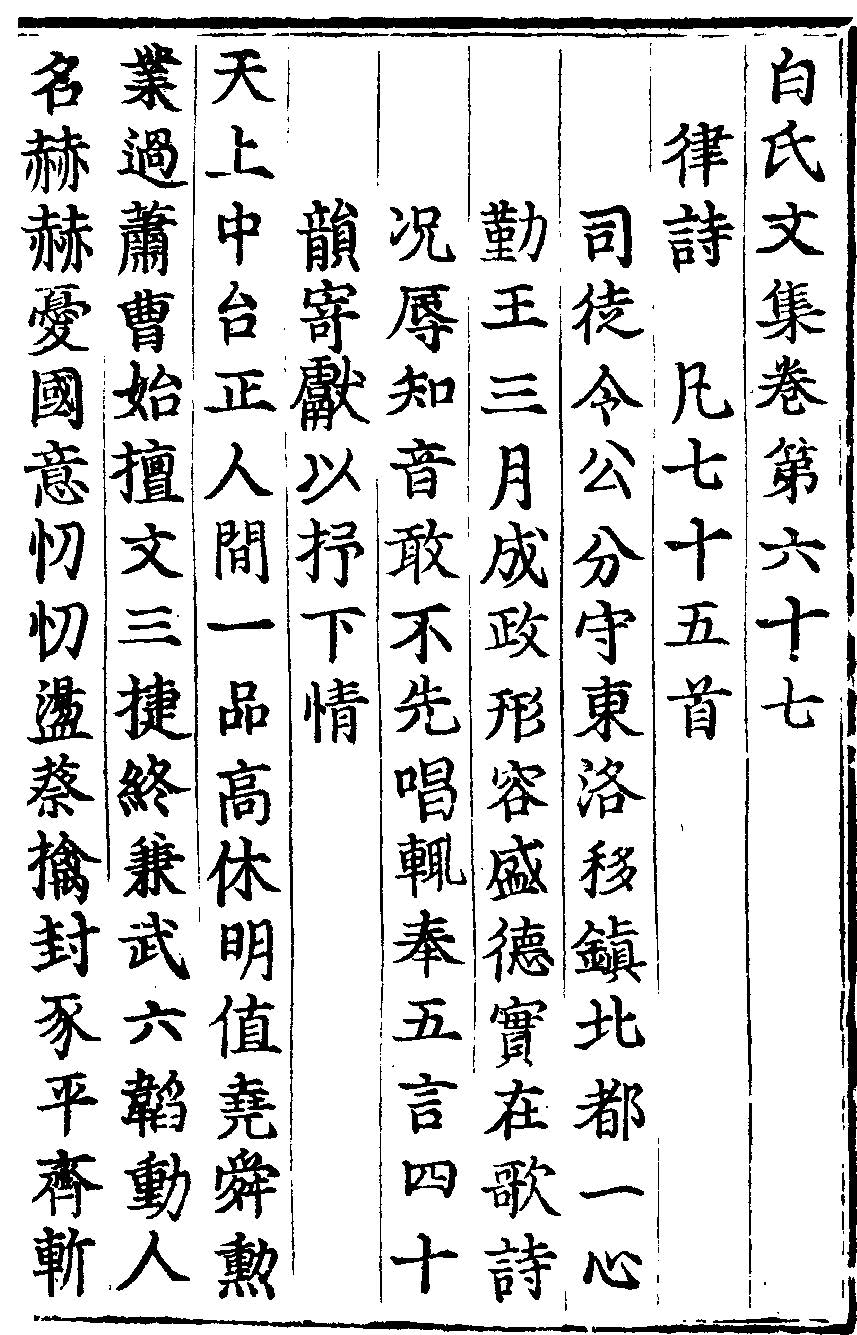 白氏文集卷第六十七
律詩　凡七十五首
司徒令公分守東洛移鎮北都一心
勤王三月成政形容盛德實在歌詩
况辱知音敢不先唱輒奉五言四十
韻寄獻以抒下情
天上中台正人間一品高休明值堯舜勲
業過蕭曹始擅文三捷終兼武六韜動人
名赫赫憂國意忉忉盪蔡擒封豕平齊斬